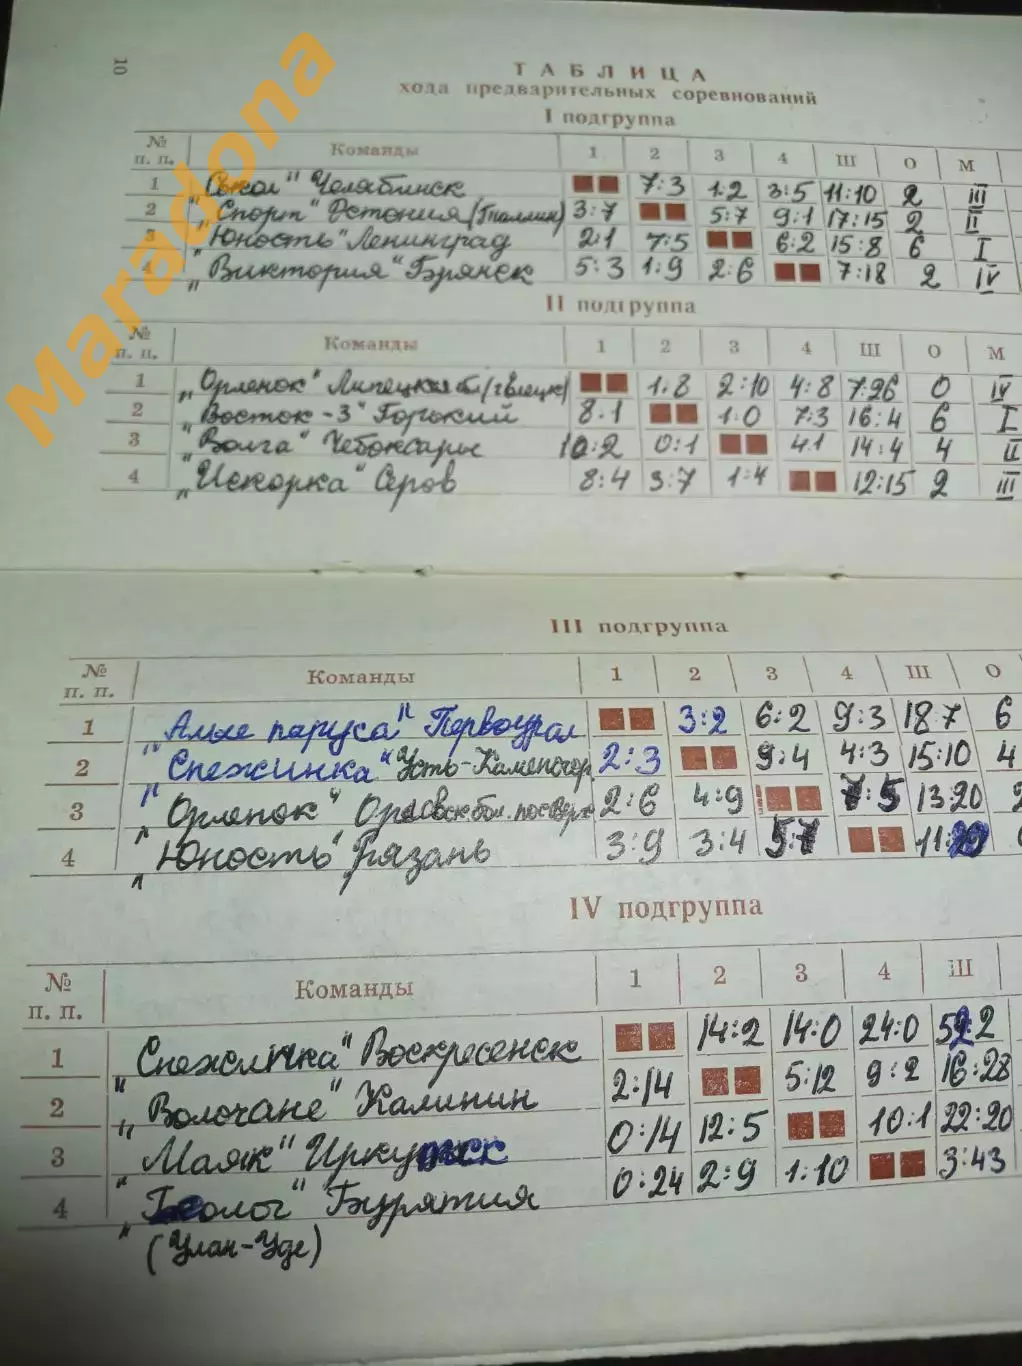 10
ТАБЛИЦА
хода предварительных соревнований
I подгруппа
№ п. п. Команды 1 2 3 4 Ш О М
1 „Сокол" Челябинск 7:3 1:2 3:5 11:10 2 III
2 „Спорт" Эстония (Таллин) 3:7 5:7 9:1 17:15 2 II
3 „Юность" Ленинград 2:1 7:5 6:2 15:8 6 I
4 „Виктория" Брянск 5:3 1:9 2:6 7:18 2 IV
II подгруппа
№ п. п. Команды 1 2 3 4 Ш О М
1 „Орленок" 1:8 2:10 4:8 7:26 0 IV
2 „Восток-3" Горький 8:1 1:0 7:3 16:4 6 I
3 „Волга" Чебоксары 10:2 0:1 4:1 14:4 4 II
4 „Искорка" Серов 8:4 3:7 1:4 12:15 2 III
III подгруппа
№ п. п. Команды 1 2 3 4 Ш О
1 „Алые паруса" Первоурал 3:2 6:2 9:3 18:7 6
2 „Снежинка" Усть-Каменогор 2:3 9:4 4:3 15:10 4
3 „Орленок" 2:6 4:9 7:5 13:20 2
4 „Юность" Рязань 3:9 3:4 5:7
IV подгруппа
№ п. п. Команды 1 2 3 4 Ш
1 „Снежинка" Воскресенск 14:2 14:0 24:0 52:2
2 „Волочане" Калинин 2:14 5:12 9:2 16:28
3 „Маяк" Иркутск 0:14 12:5 10:1 22:20
4 „Геолог" Бурятия 0:24 2:9 1:10 3:43
(Улан-Уде)
Maradona